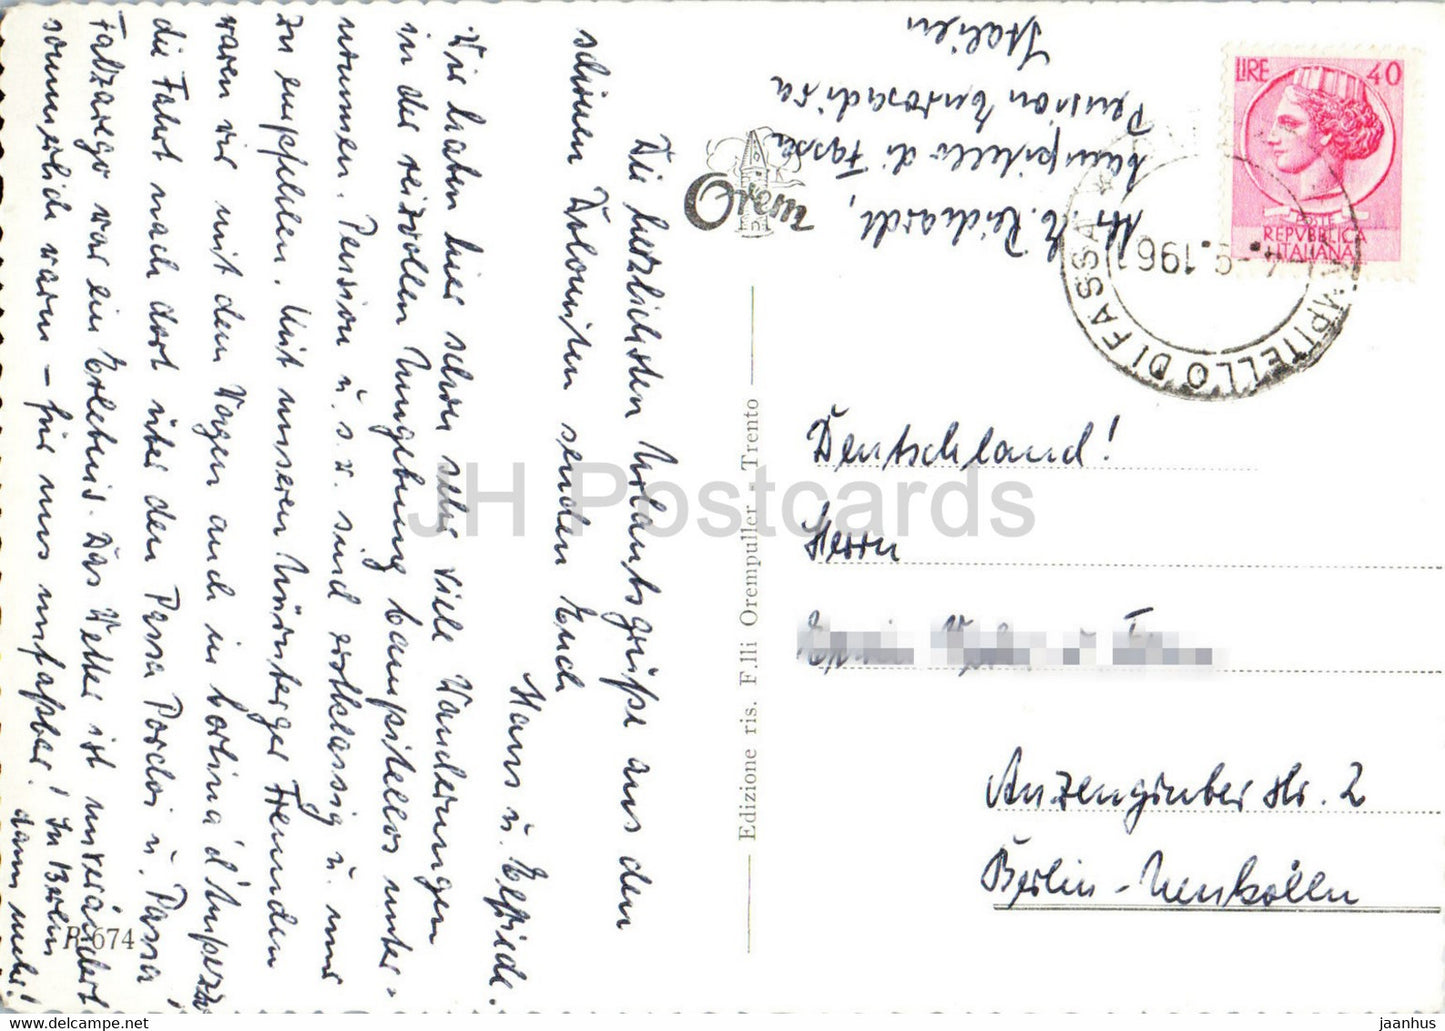 Die herzlichsten Urlaubsgrüße aus den
schönen Dolomiten senden Euch
Hans u. Elfriede.
Wir haben hier schon sehr viele Wanderungen
in der reizvollen Umgebung Campitellos unter-
nommen. Pension u.s.w. sind erstklassig u. nur
zu empfehlen. Mit unseren Nürnberger Freunden
waren wir mit dem Wagen auch in Cortina d'Ampezzo,
die Fahrt nach dort über den Passo Pordoi u. Passo
Falzarego war ein Erlebnis. Das Wetter ist unverändert
sommerlich warm – für uns unfaßbar! In Berlin
dann mehr!
R-674
Orem
Edizione ris. F.lli Orempuller - Trento
Abs. Reichardt,
Campitello di Fassa
Pension Enrosadira
Italien
LIRE 40
POSTE
REPVBBLICA
ITALIANA
CAMPITELLO DI FASSA
Deutschland!
Herrn
Anzengruber Str. 2
Berlin-Neukölln
JH Postcards
www.delcampe.net
jaanhus